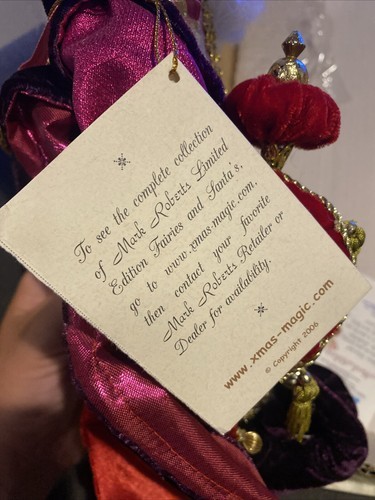 To see the complete collection
of Mark Roberts Limited
Edition Fairies and Santa's,
go to www.xmas-magic.com,
then contact your favorite
Mark Roberts Retailer or
Dealer for availability.
www.xmas-magic.com
© Copyright 2006